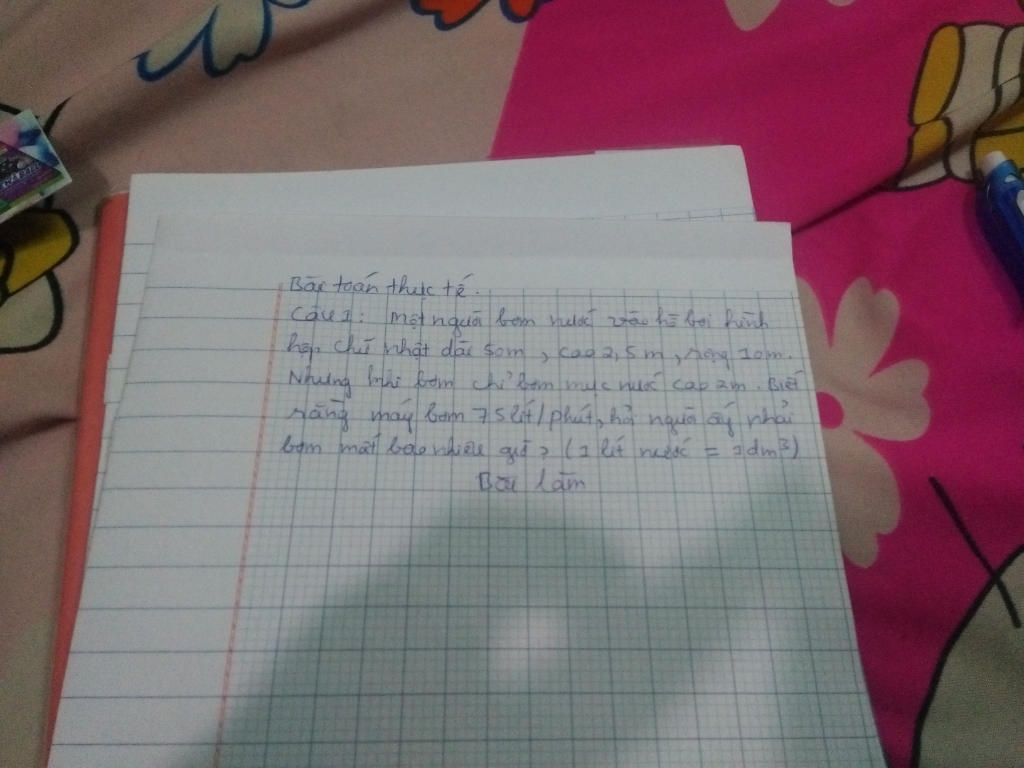 Bài toán thực tế.
Câu 1: Một người bơm nước vào hồ bơi hình
hộp chữ nhật dài 50m, cao 2,5m, rộng 10m.
Nhưng khi bơm chỉ bơm mực nước cao 2m. Biết
rằng máy bơm 75 lít/phút, hỏi người ấy phải
bơm mất bao nhiêu giờ? (1 lít nước = 1dm³)
Bài làm